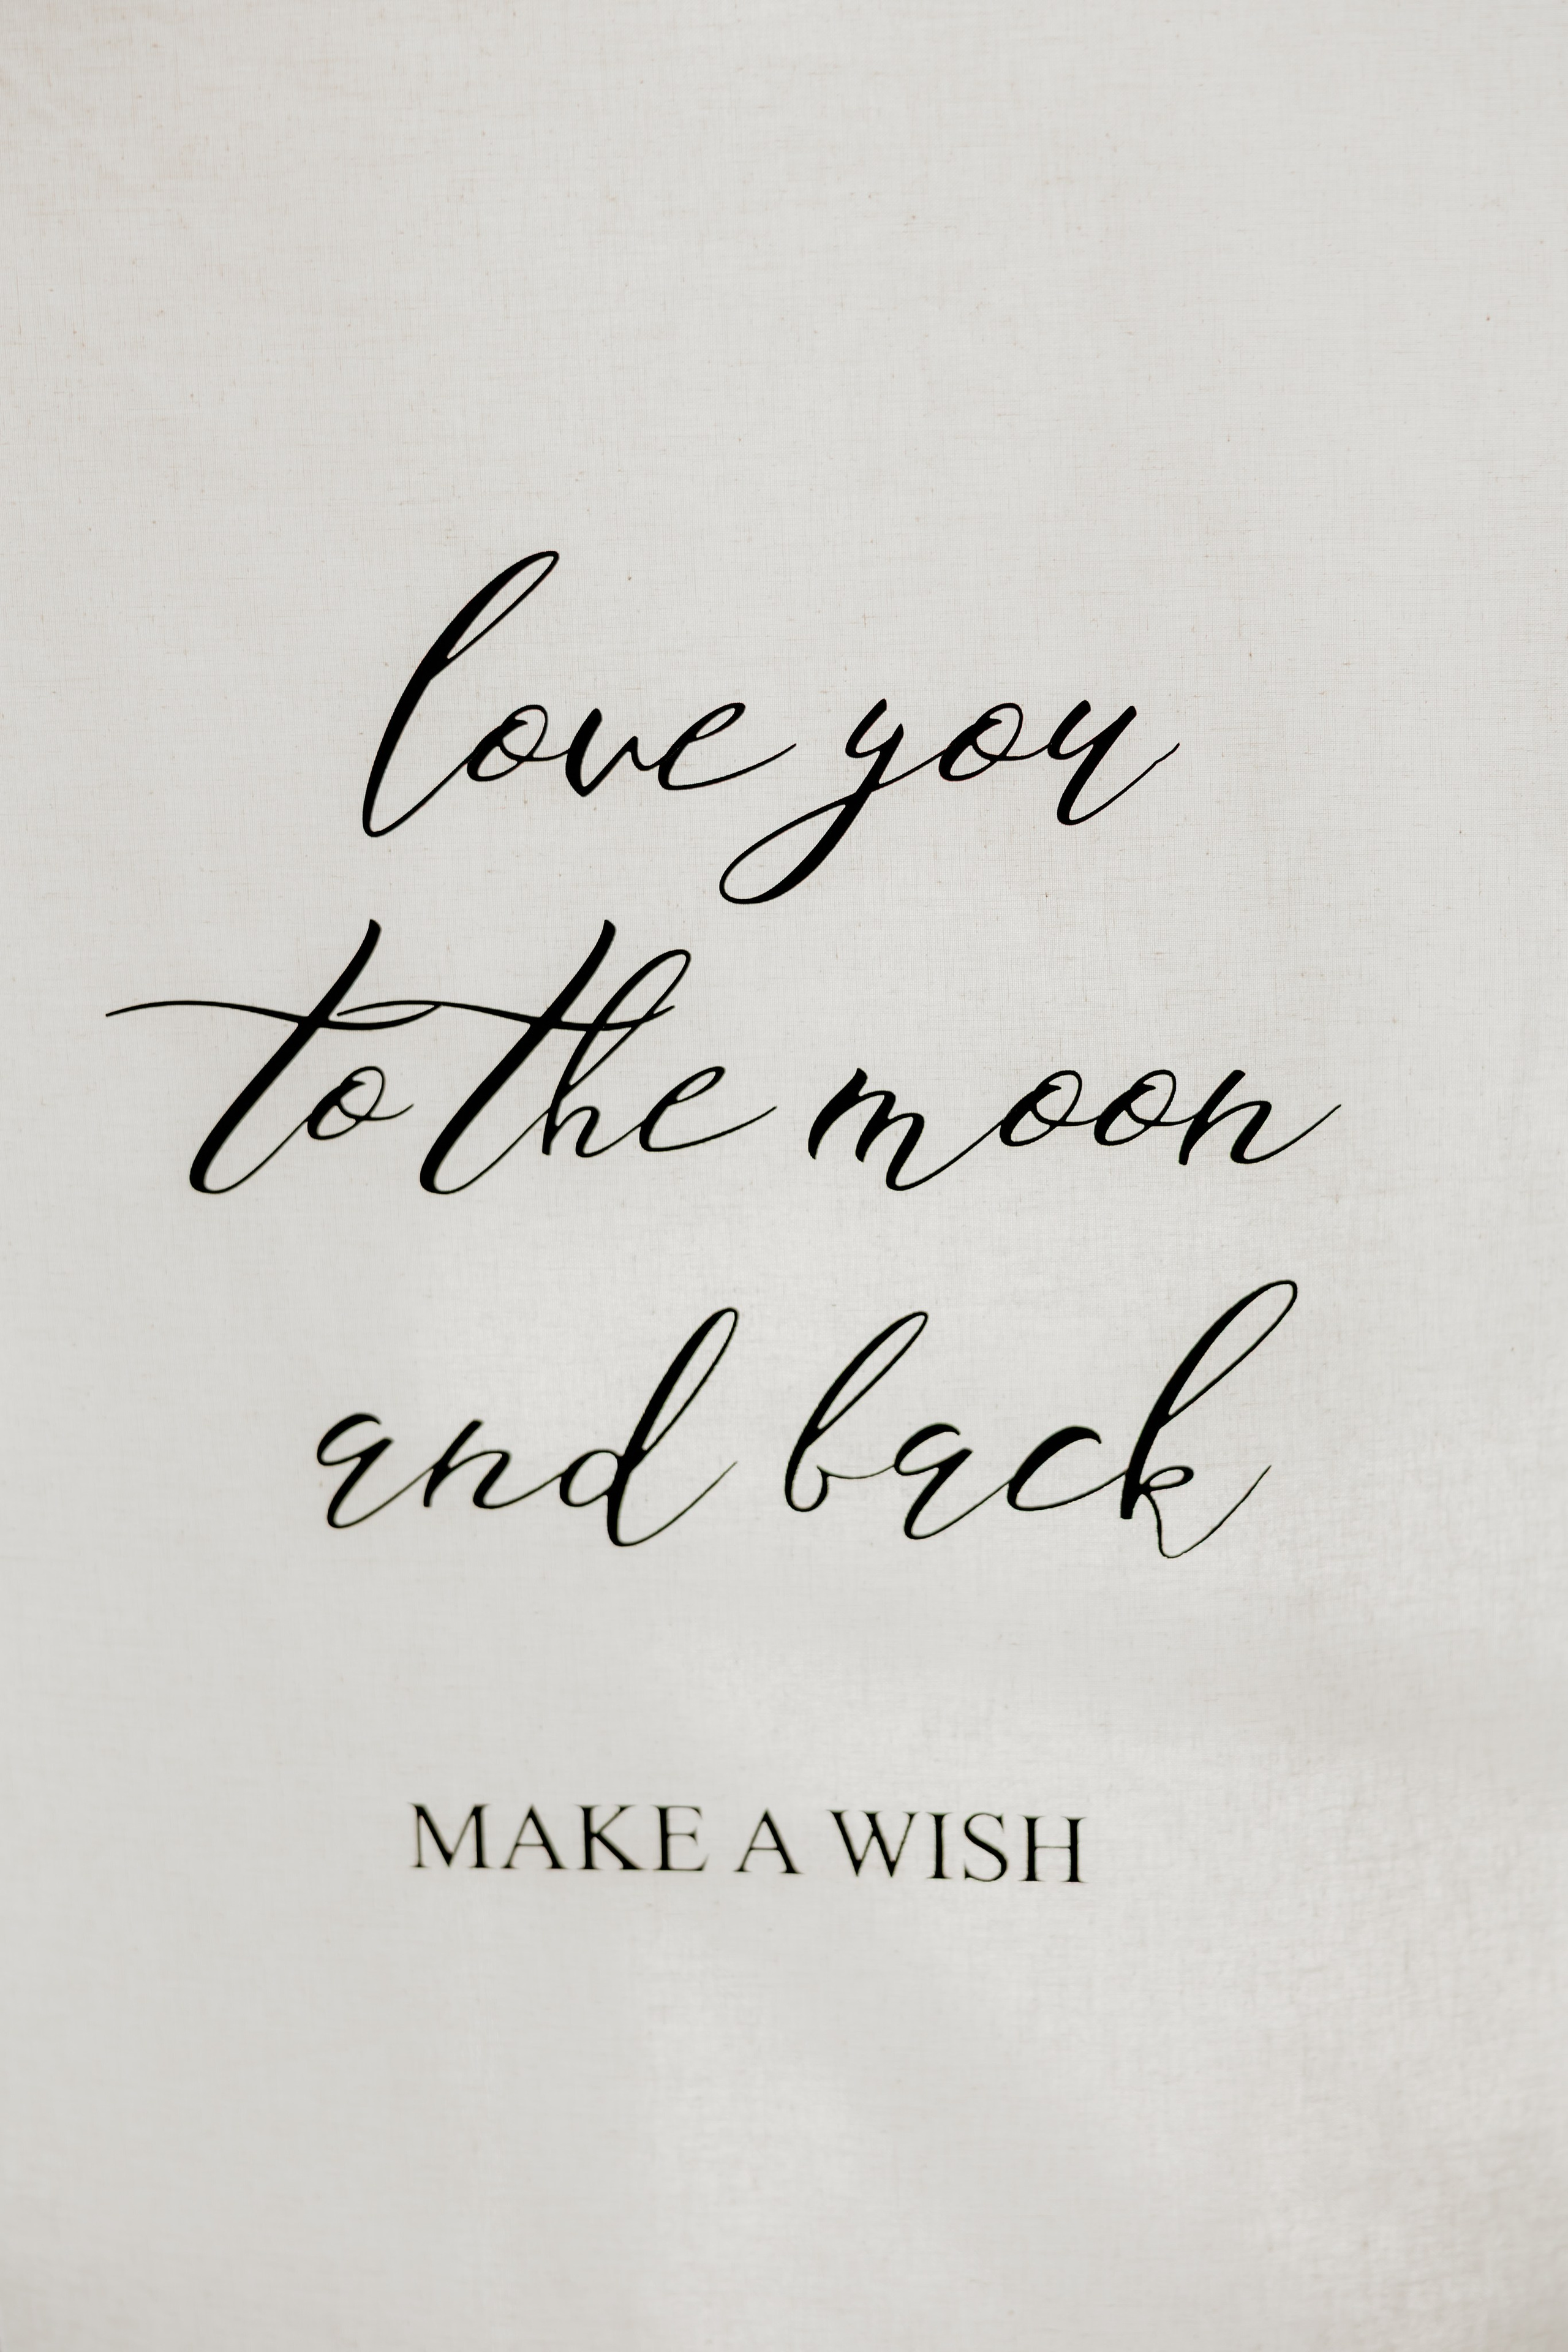 love you
to the moon
and back
MAKE A WISH